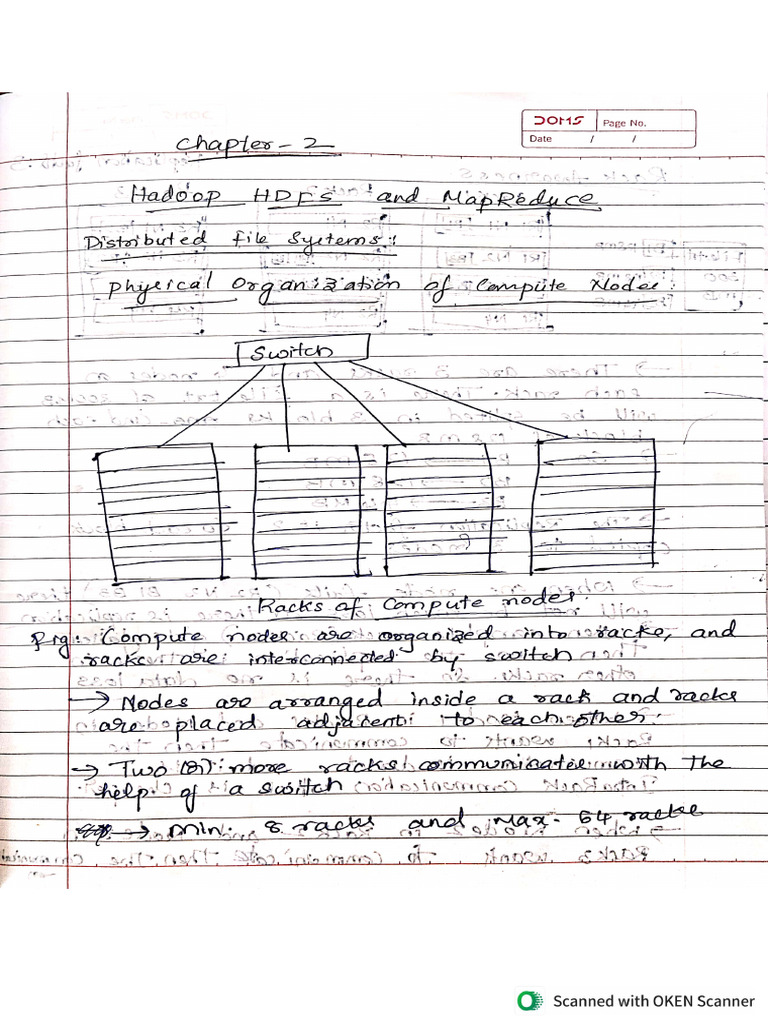 DOMS Page No.
Date / /
Chapter - 2
Hadoop HDFS and MapReduce
Distributed File Systems:
Physical Organization of Compute Nodes:
Switch
Racks of Compute nodes.
Compute nodes are organized into racks, and
racks are interconnected by switch
→ Nodes are arranged inside a rack and racks
are placed adjacent to each other.
→ Two (or) more racks communicates with the
help of a switch
→ min. 8 racks and Max - 64 racks
Scanned with OKEN Scanner